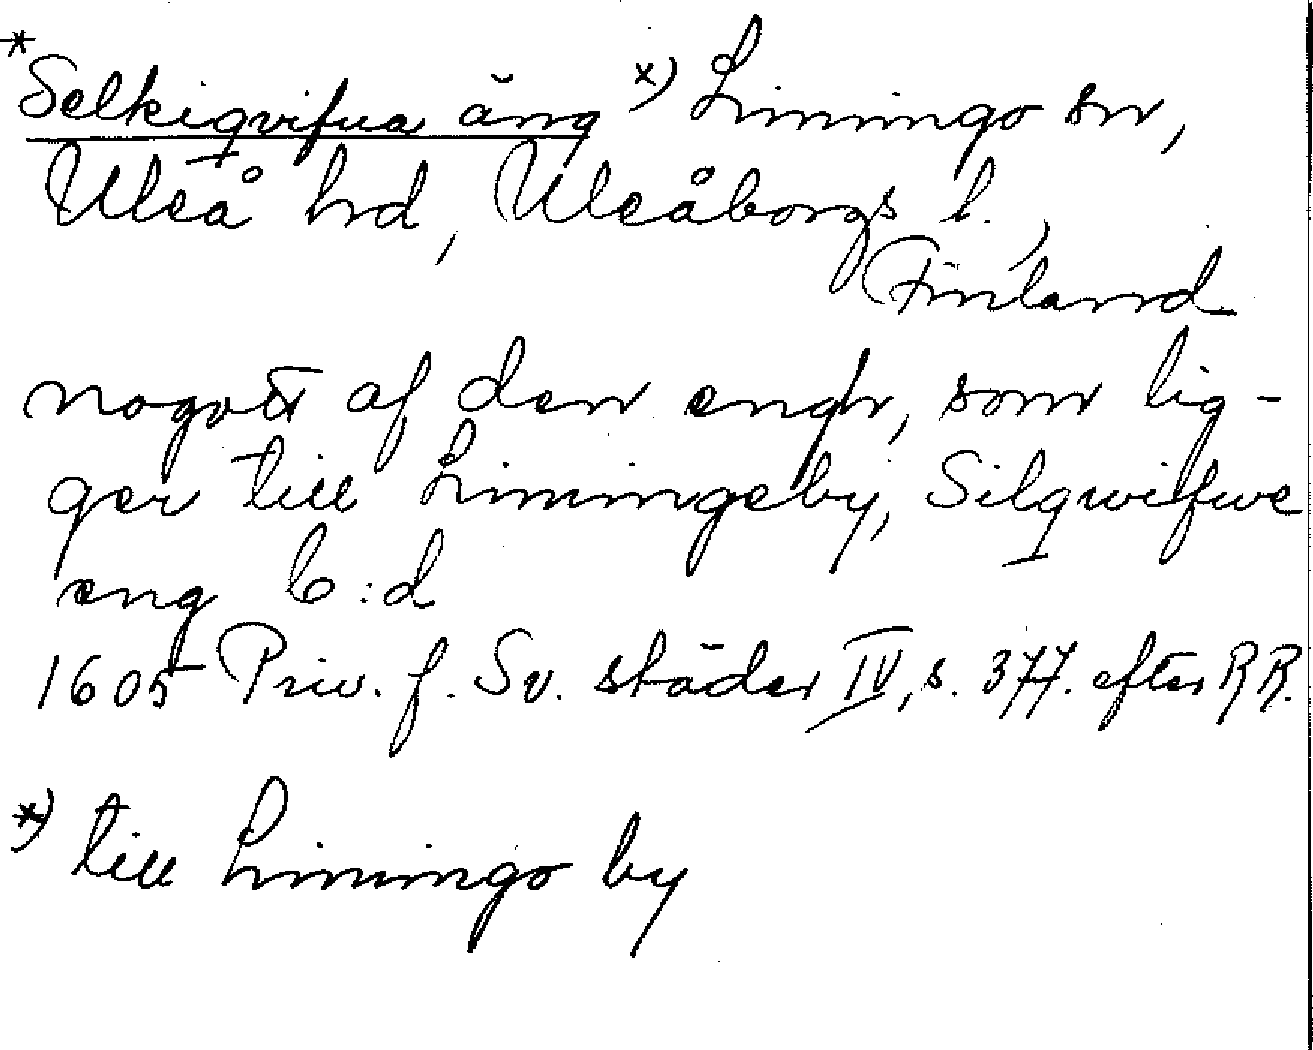 *Selkiqvifua äng x) Limingo sn,
Uleå hrd, Uleåborgs l.,
Finland
nogott af den engh, som lig-
ger till Limingeby, Silqwifwe
eng b:d
1605 Priv. f. Sv. städer IV, s. 377. efter RR.
x) till Limingo by